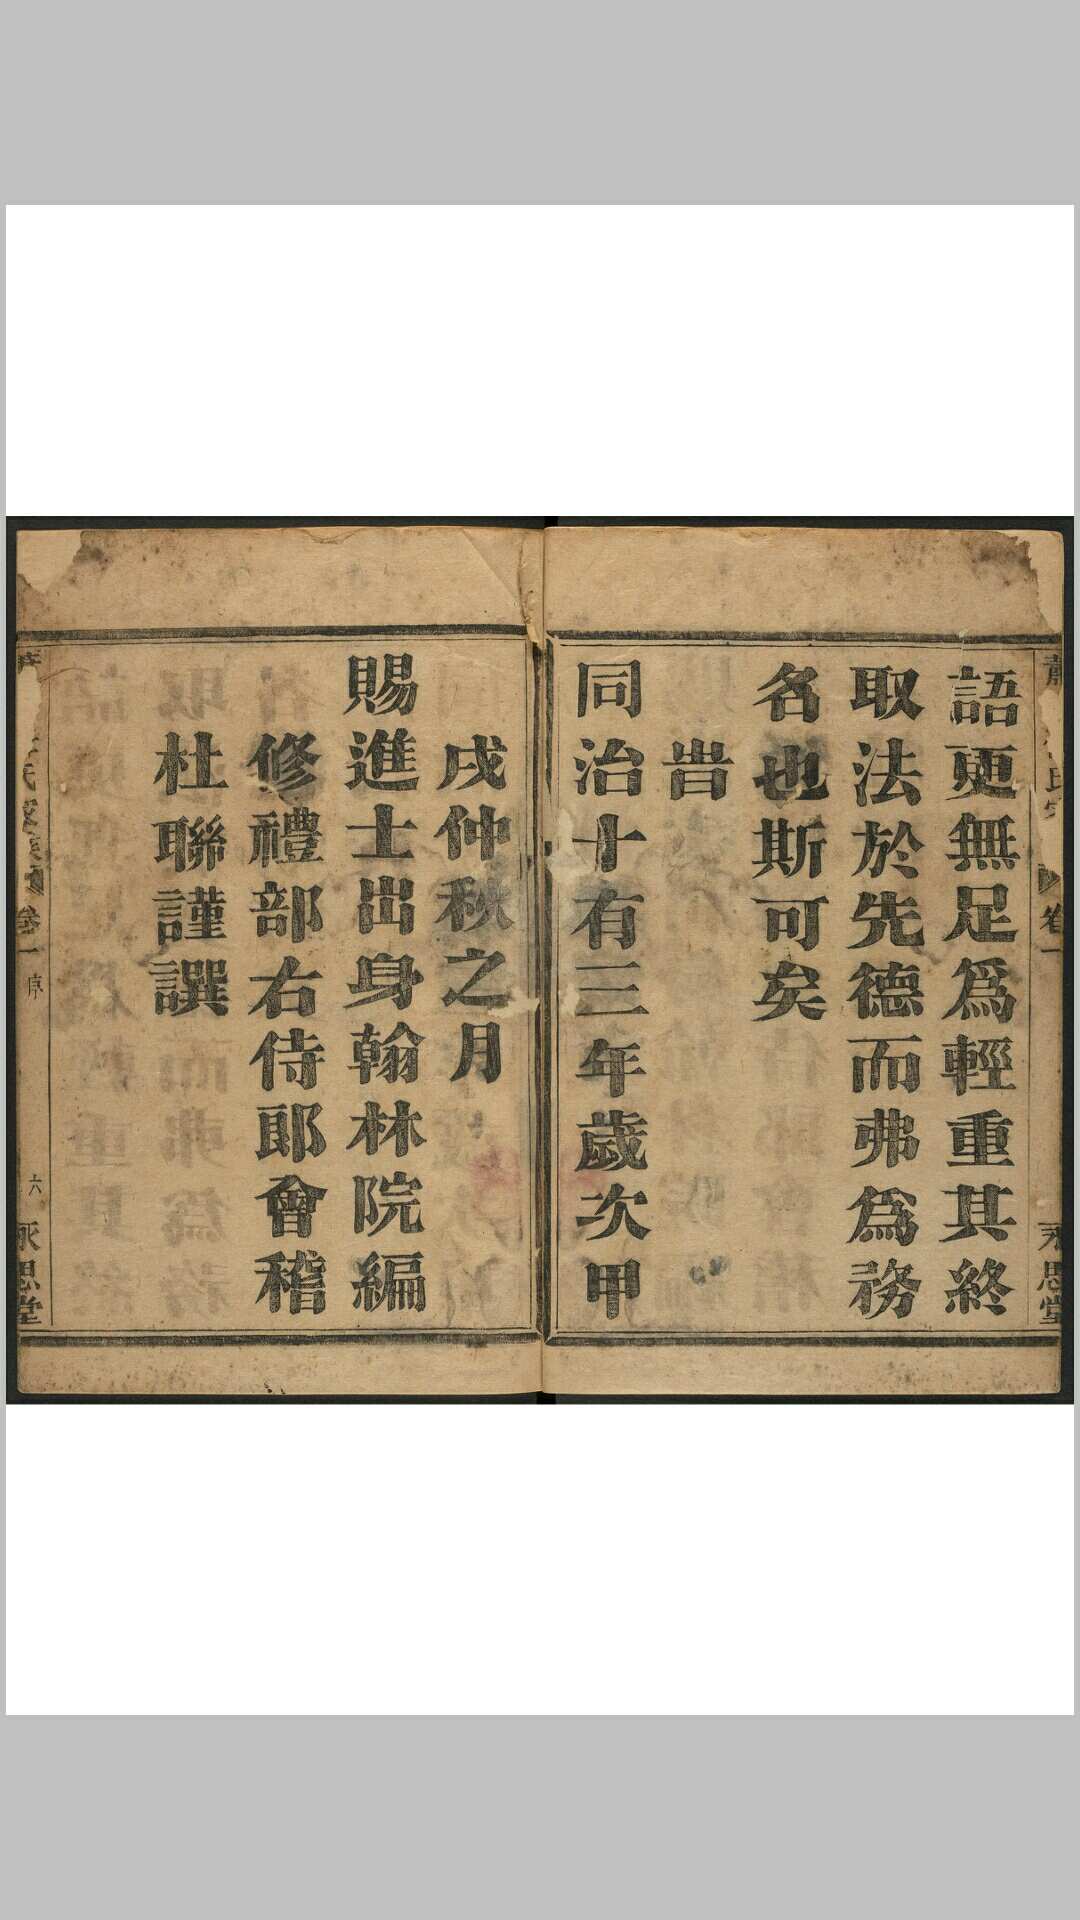 語更無足爲輕重其終
取法於先德而弗爲務
名也斯可矣
旹
同治十有三年歲次甲
戌仲秋之月
賜進士出身翰林院編
修禮部右侍郎會稽
杜聯謹譔
卷一
永思堂
氏家
卷一
序
六
永思堂